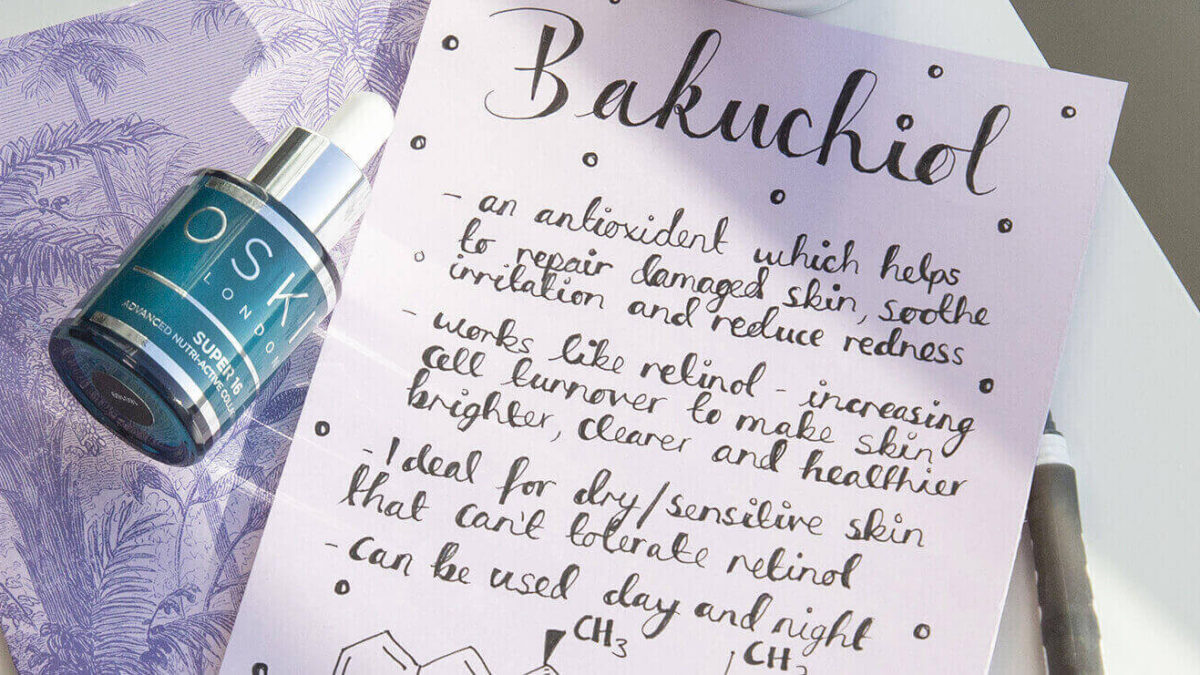 Bakuchiol
- an antioxident which helps
to repair damaged skin, soothe
irritation and reduce redness
- works like retinol - increasing
cell turnover to make skin
brighter, clearer and healthier
- Ideal for dry/sensitive skin
that can't tolerate retinol
- can be used day and night
CH3
CH3
OSKI
LONDO
SUPER 16
ADVANCED NUTRI-ACTIVE